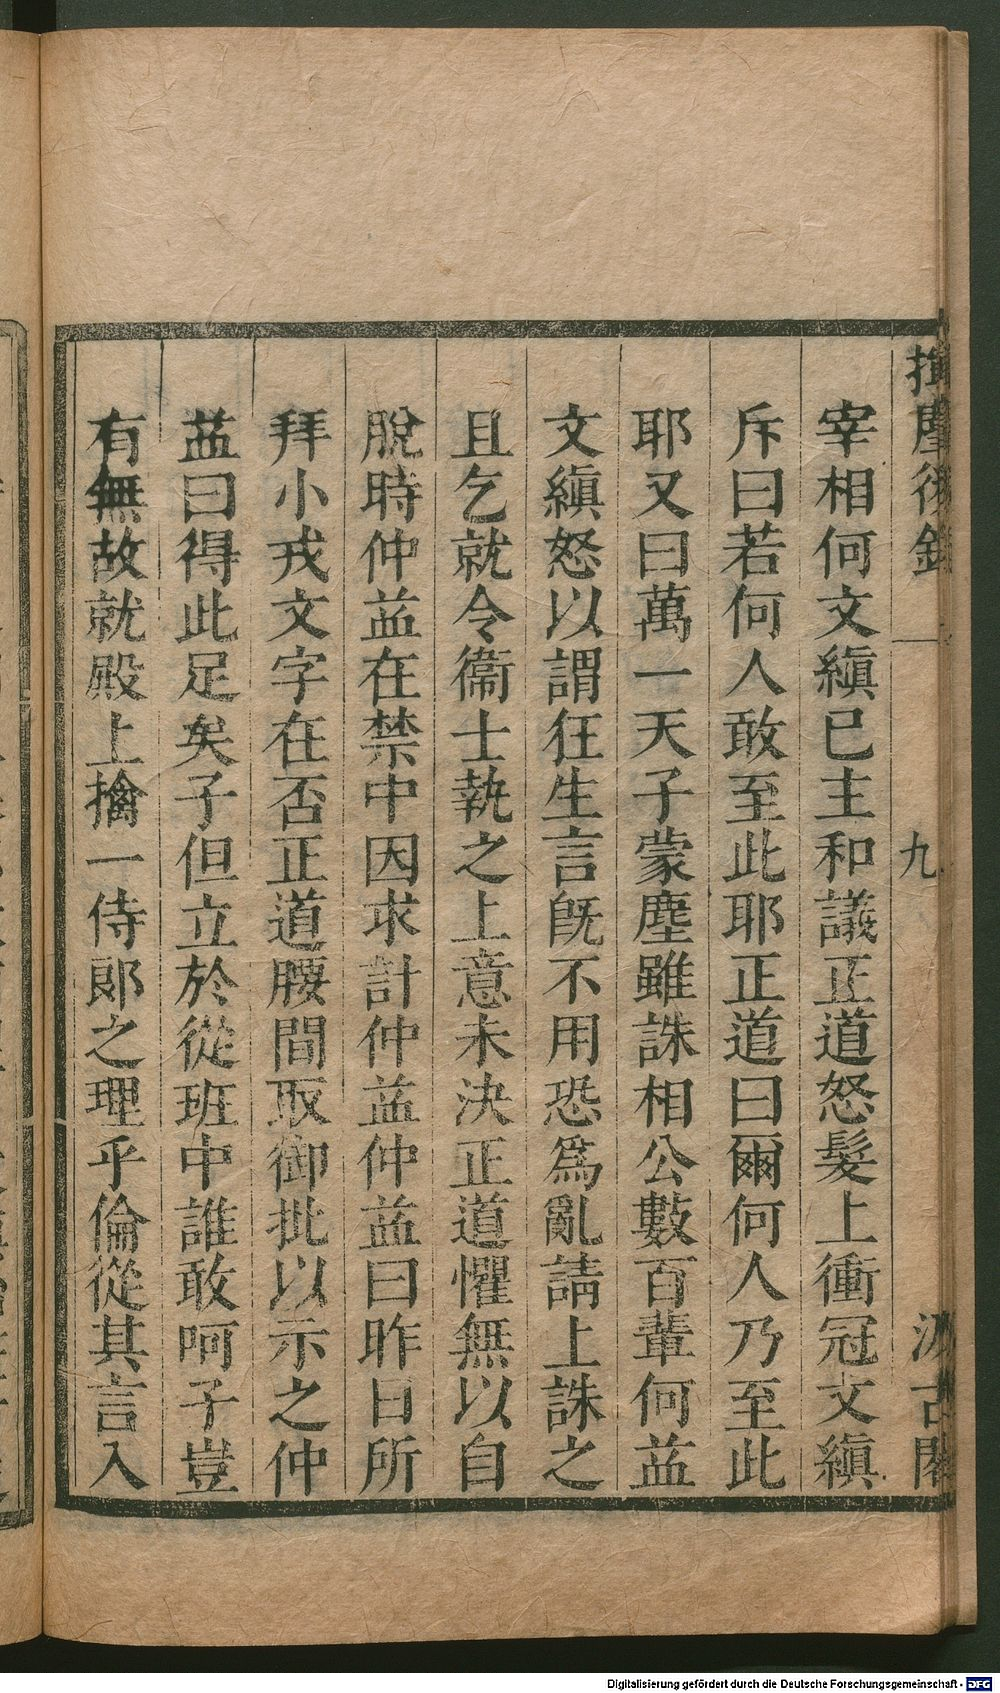 揮麈後錄
九
汲古閣
宰相何文縝已主和議正道怒髮上衝冠文縝
斥曰若何人敢至此耶正道曰爾何人乃至此
耶又曰萬一天子蒙塵雖誅相公數百輩何益
文縝怒以謂狂生言旣不用恐爲亂請上誅之
且乞就令衞士執之上意未決正道懼無以自
脫時仲益在禁中因求計仲益仲益曰昨日所
拜小戎文字在否正道腰間取御批以示之仲
益曰得此足矣子但立於從班中誰敢呵子豈
有無故就殿上擒一侍郞之理乎倫從其言入
Digitalisierung gefördert durch die Deutsche Forschungsgemeinschaft - DFG